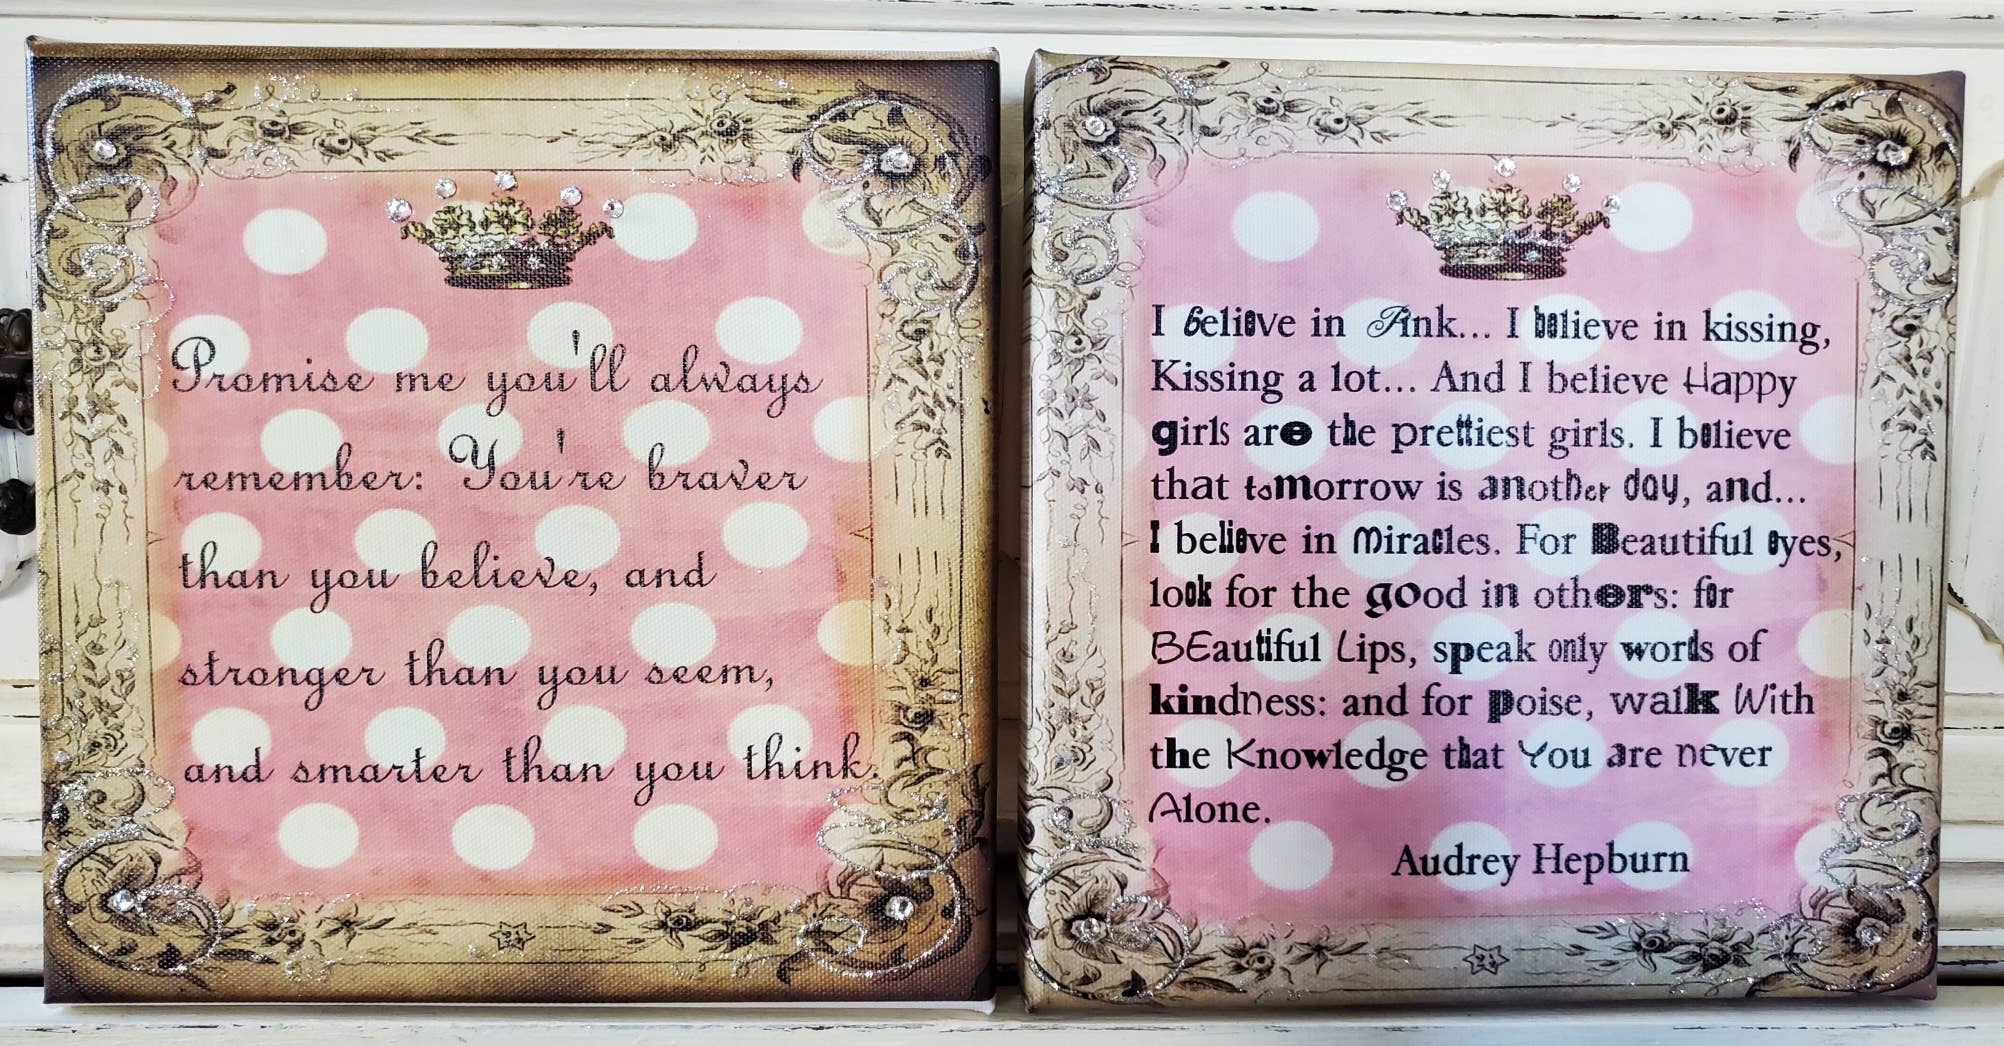 Promise me you'll always
remember: You're braver
than you believe, and
stronger than you seem,
and smarter than you think.
I believe in Pink... I believe in kissing,
Kissing a lot... And I believe Happy
girls are the prettiest girls. I believe
that tomorrow is another day, and...
I believe in Miracles. For Beautiful eyes,
look for the good in others: for
BEautiful Lips, speak only words of
kindness: and for poise, walk With
the Knowledge that You are never
Alone.
Audrey Hepburn